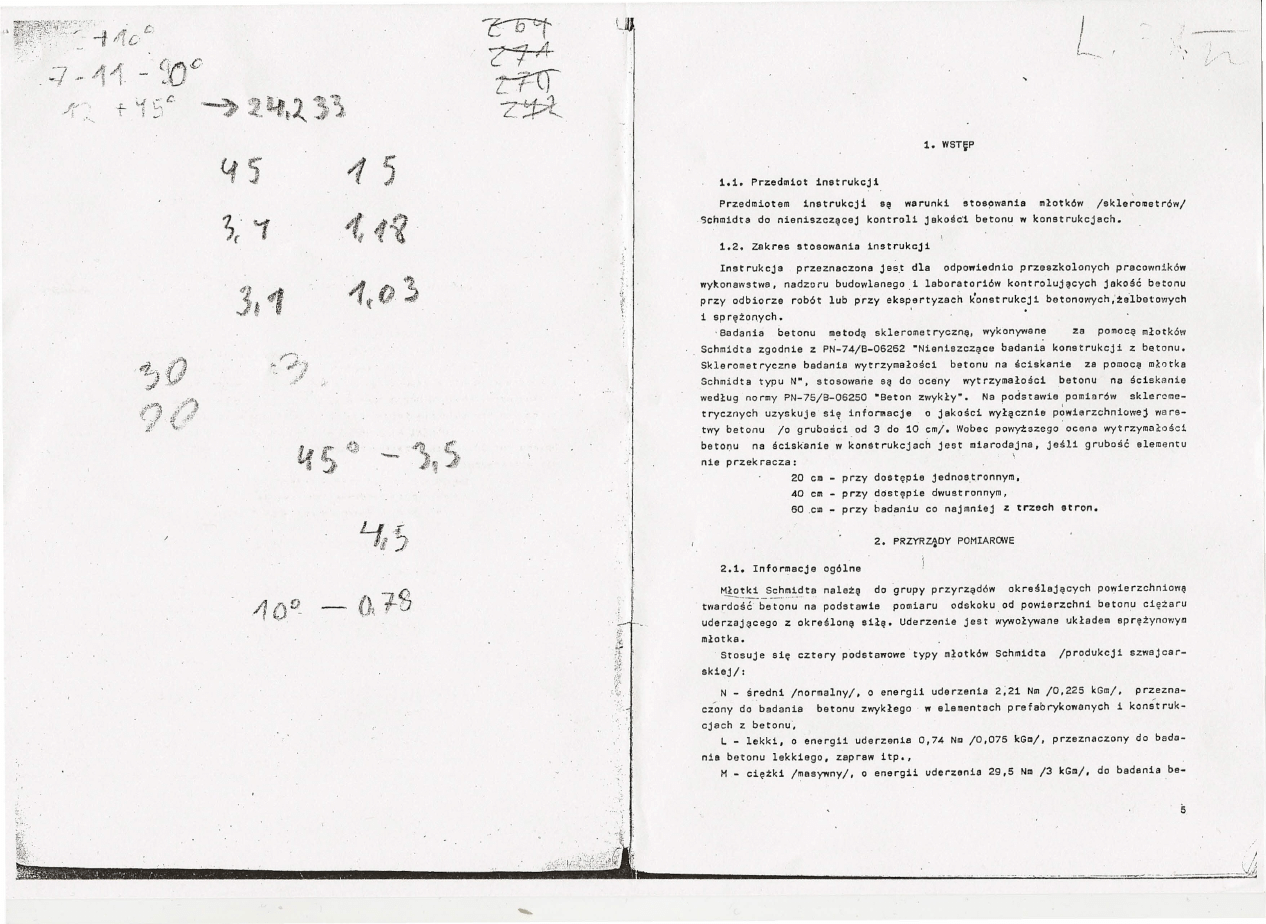 +10°
7 - 11 - 90°
12 + 45° → 24,2 33
45 15
3,4 1,18
3,1 1,03
30 3
90
45° - 3,5
4,5
10° - 0,78
264
271
270
242
L.
1. WSTĘP
1.1. Przedmiot instrukcji
Przedmiotem instrukcji są warunki stosowania młotków /sklerometrów/
Schmidta do nieniszczącej kontroli jakości betonu w konstrukcjach.
1.2. Zakres stosowania instrukcji
Instrukcja przeznaczona jest dla odpowiednio przeszkolonych pracowników
wykonawstwa, nadzoru budowlanego i laboratoriów kontrolujących jakość betonu
przy odbiorze robót lub przy ekspertyzach konstrukcji betonowych,żelbetowych
i sprężonych.
Badania betonu metodą sklerometryczną, wykonywane za pomocą młotków
Schmidta zgodnie z PN-74/B-06262 "Nieniszczące badania konstrukcji z betonu.
Sklerometryczne badania wytrzymałości betonu na ściskanie za pomocą młotka
Schmidta typu N", stosowane są do oceny wytrzymałości betonu na ściskanie
według normy PN-75/B-06250 "Beton zwykły". Na podstawie pomiarów sklerome-
trycznych uzyskuje się informacje o jakości wyłącznie powierzchniowej wars-
twy betonu /o grubości od 3 do 10 cm/. Wobec powyższego ocena wytrzymałości
betonu na ściskanie w konstrukcjach jest miarodajna, jeśli grubość elementu
nie przekracza:
20 cm - przy dostępie jednostronnym,
40 cm - przy dostępie dwustronnym,
60 cm - przy badaniu co najmniej z trzech stron.
2. PRZYRZĄDY POMIAROWE
2.1. Informacje ogólne
Młotki Schmidta należą do grupy przyrządów określających powierzchniową
twardość betonu na podstawie pomiaru odskoku od powierzchni betonu ciężaru
uderzającego z określoną siłą. Uderzenie jest wywoływane układem sprężynowym
młotka.
Stosuje się cztery podstawowe typy młotków Schmidta /produkcji szwajcar-
skiej/:
N - średni /normalny/, o energii uderzenia 2,21 Nm /0,225 kGm/, przezna-
czony do badania betonu zwykłego w elementach prefabrykowanych i konstruk-
cjach z betonu,
L - lekki, o energii uderzenia 0,74 Nm /0,075 kGm/, przeznaczony do bada-
nia betonu lekkiego, zapraw itp.,
M - ciężki /masywny/, o energii uderzenia 29,5 Nm /3 kGm/, do badania be-
5